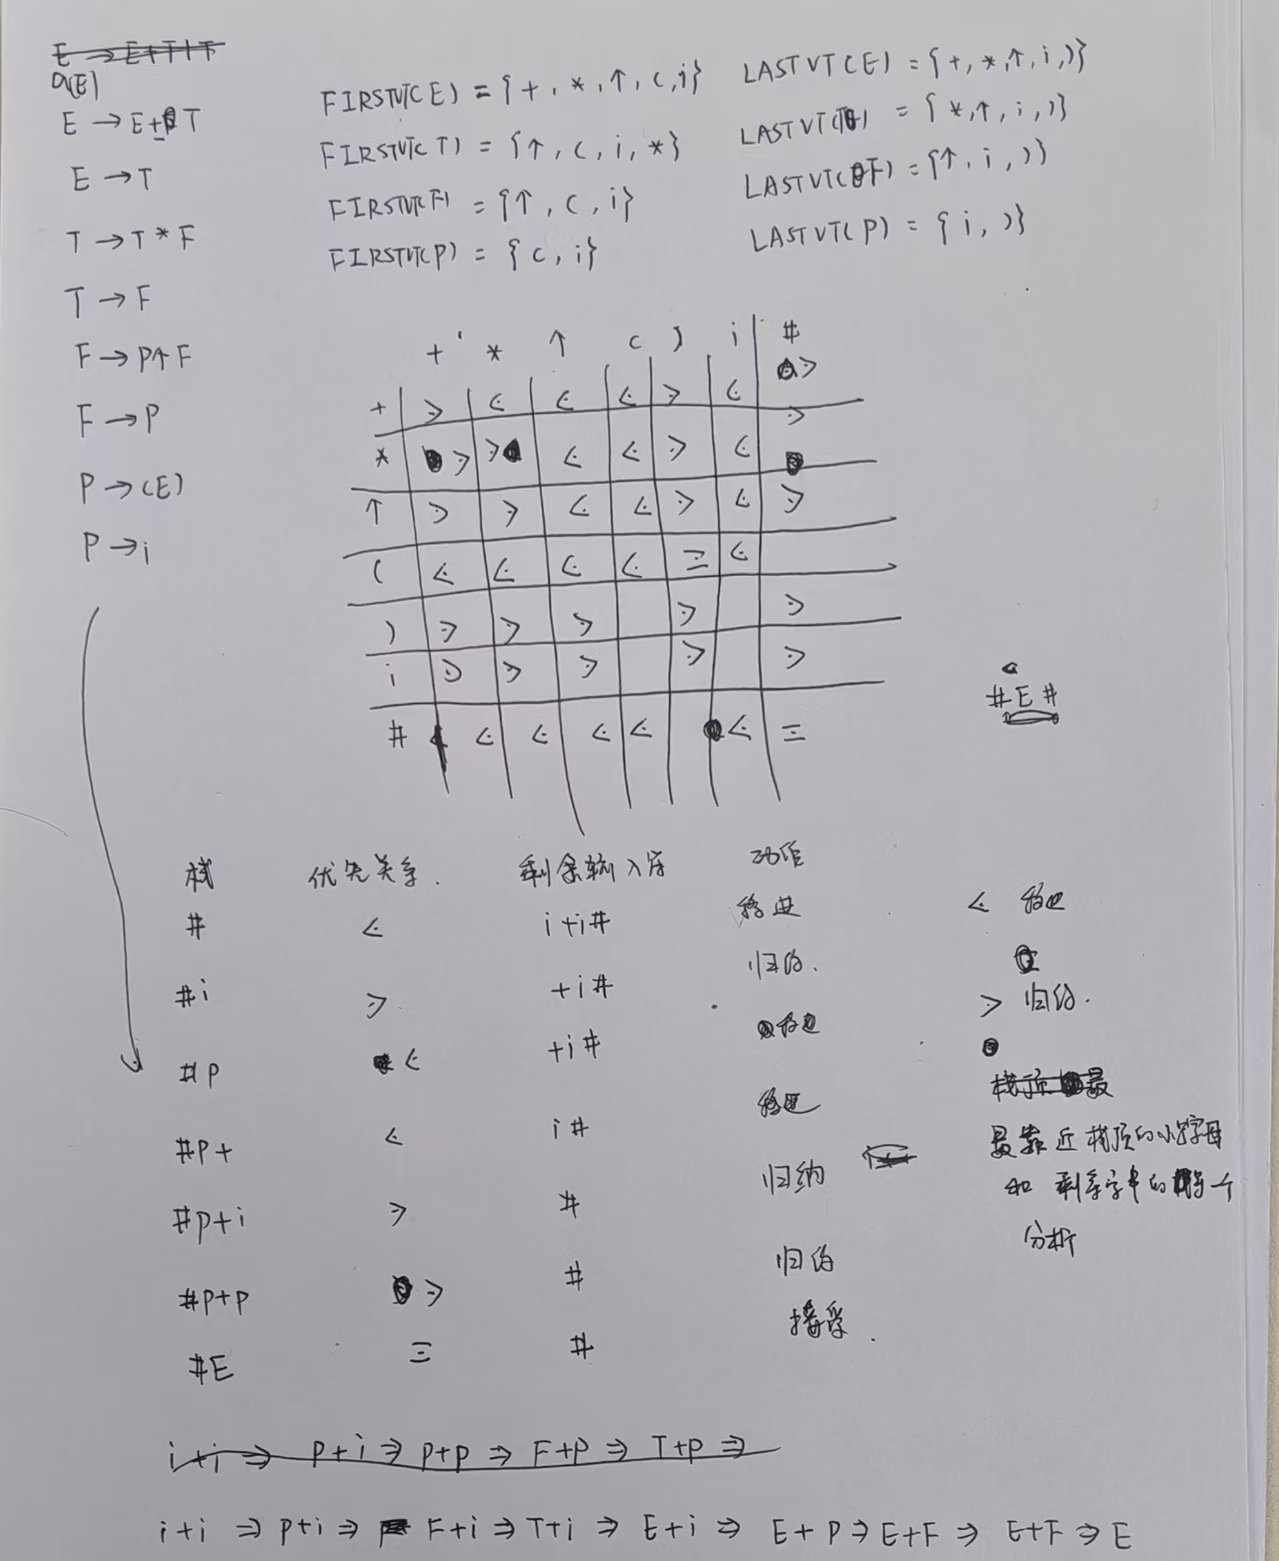 E → E+T|T
E → E+T
E → T
T → T * F
T → F
F → P↑F
F → P
P → (E)
P → i
FIRSTVT(E) = {+, *, ↑, (, i}
FIRSTVT(T) = {↑, (, i, *}
FIRSTVT(F) = {↑, (, i}
FIRSTVT(P) = {(, i}
LASTVT(E) = {+, *, ↑, i, )}
LASTVT(T) = {*, ↑, i, )}
LASTVT(F) = {↑, i, )}
LASTVT(P) = {i, )}
+ * ↑ ( ) i #
+ ⋗ ⋖ ⋖ ⋖ ⋗ ⋖ ⋗
* ⋗ ⋗ ⋖ ⋖ ⋗ ⋖ ⋗
↑ ⋗ ⋗ ⋖ ⋖ ⋗ ⋖ ⋗
( ⋖ ⋖ ⋖ ⋖ = ⋖
) ⋗ ⋗ ⋗ ⋗ ⋗
i ⋗ ⋗ ⋗ ⋗ ⋗
# ⋖ ⋖ ⋖ ⋖ ⋖ =
#E#
栈 优先关系. 剩余输入串 动作
# ⋖ i+i# 移进
#i ⋗ +i# 归约.
#P ⋖ +i# 移进
#P+ ⋖ i# 移进
#P+i ⋗ # 归约
#P+P ⋗ # 归约
#E = # 接受.
⋖ 移进
⋗ 归约.
栈顶 最
最靠近栈顶的小写字母
和 剩余字串的第一个
分析
i+i ⇒ P+i ⇒ P+P ⇒ F+P ⇒ T+P ⇒
i+i ⇒ P+i ⇒ F+i ⇒ T+i ⇒ E+i ⇒ E+P ⇒ E+F ⇒ E+F ⇒ E